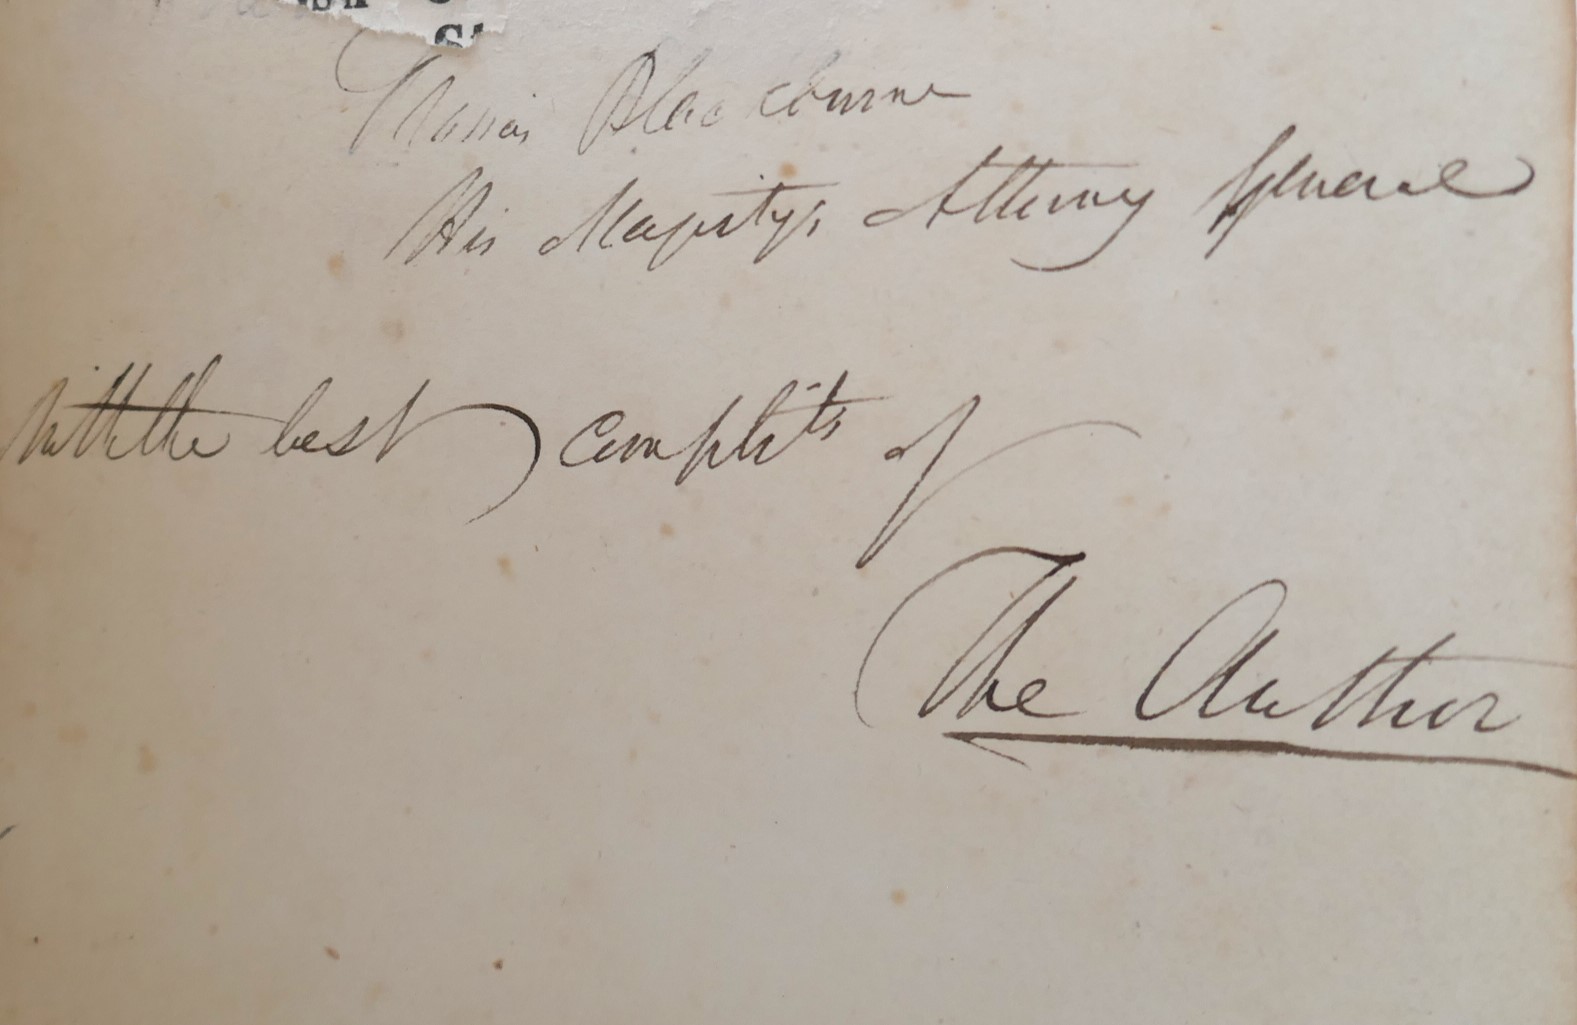 Francis Blackburne
His Majestys Attorney General
With the best complits of
The Author